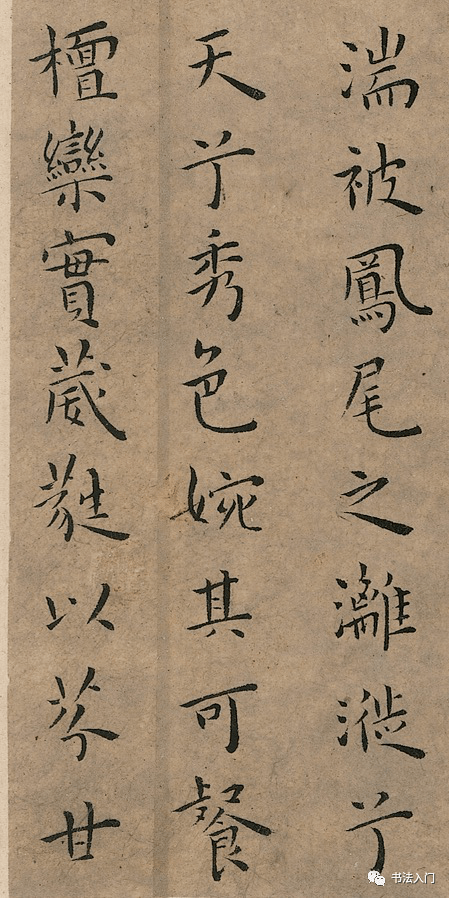 湍被鳳尾之灕漇兮
天兮秀色婉其可餐
檀欒實葳蕤以芬甘
书法入门